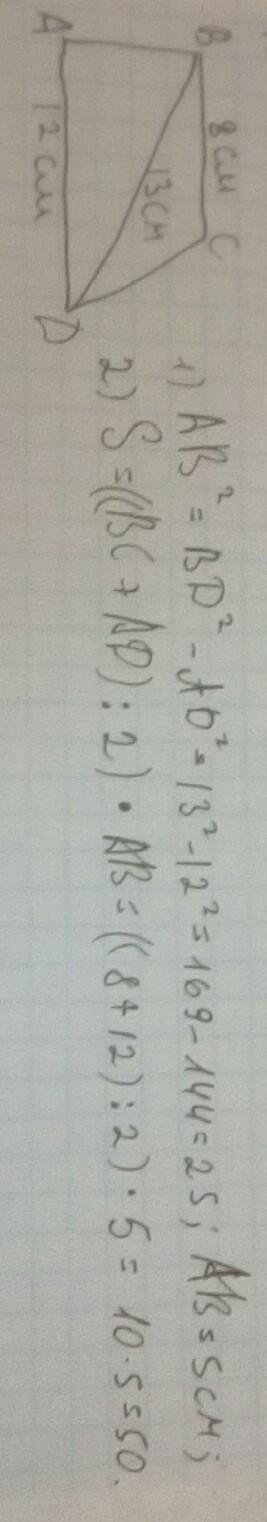 A
B
8 см
C
13 см
12 см
D
1) AB² = BD² - AD² = 13² - 12² = 169 - 144 = 25; AB = 5 см;
2) S = ((BC + AD) : 2) · AB = ((8 + 12) : 2) · 5 = 10 · 5 = 50.